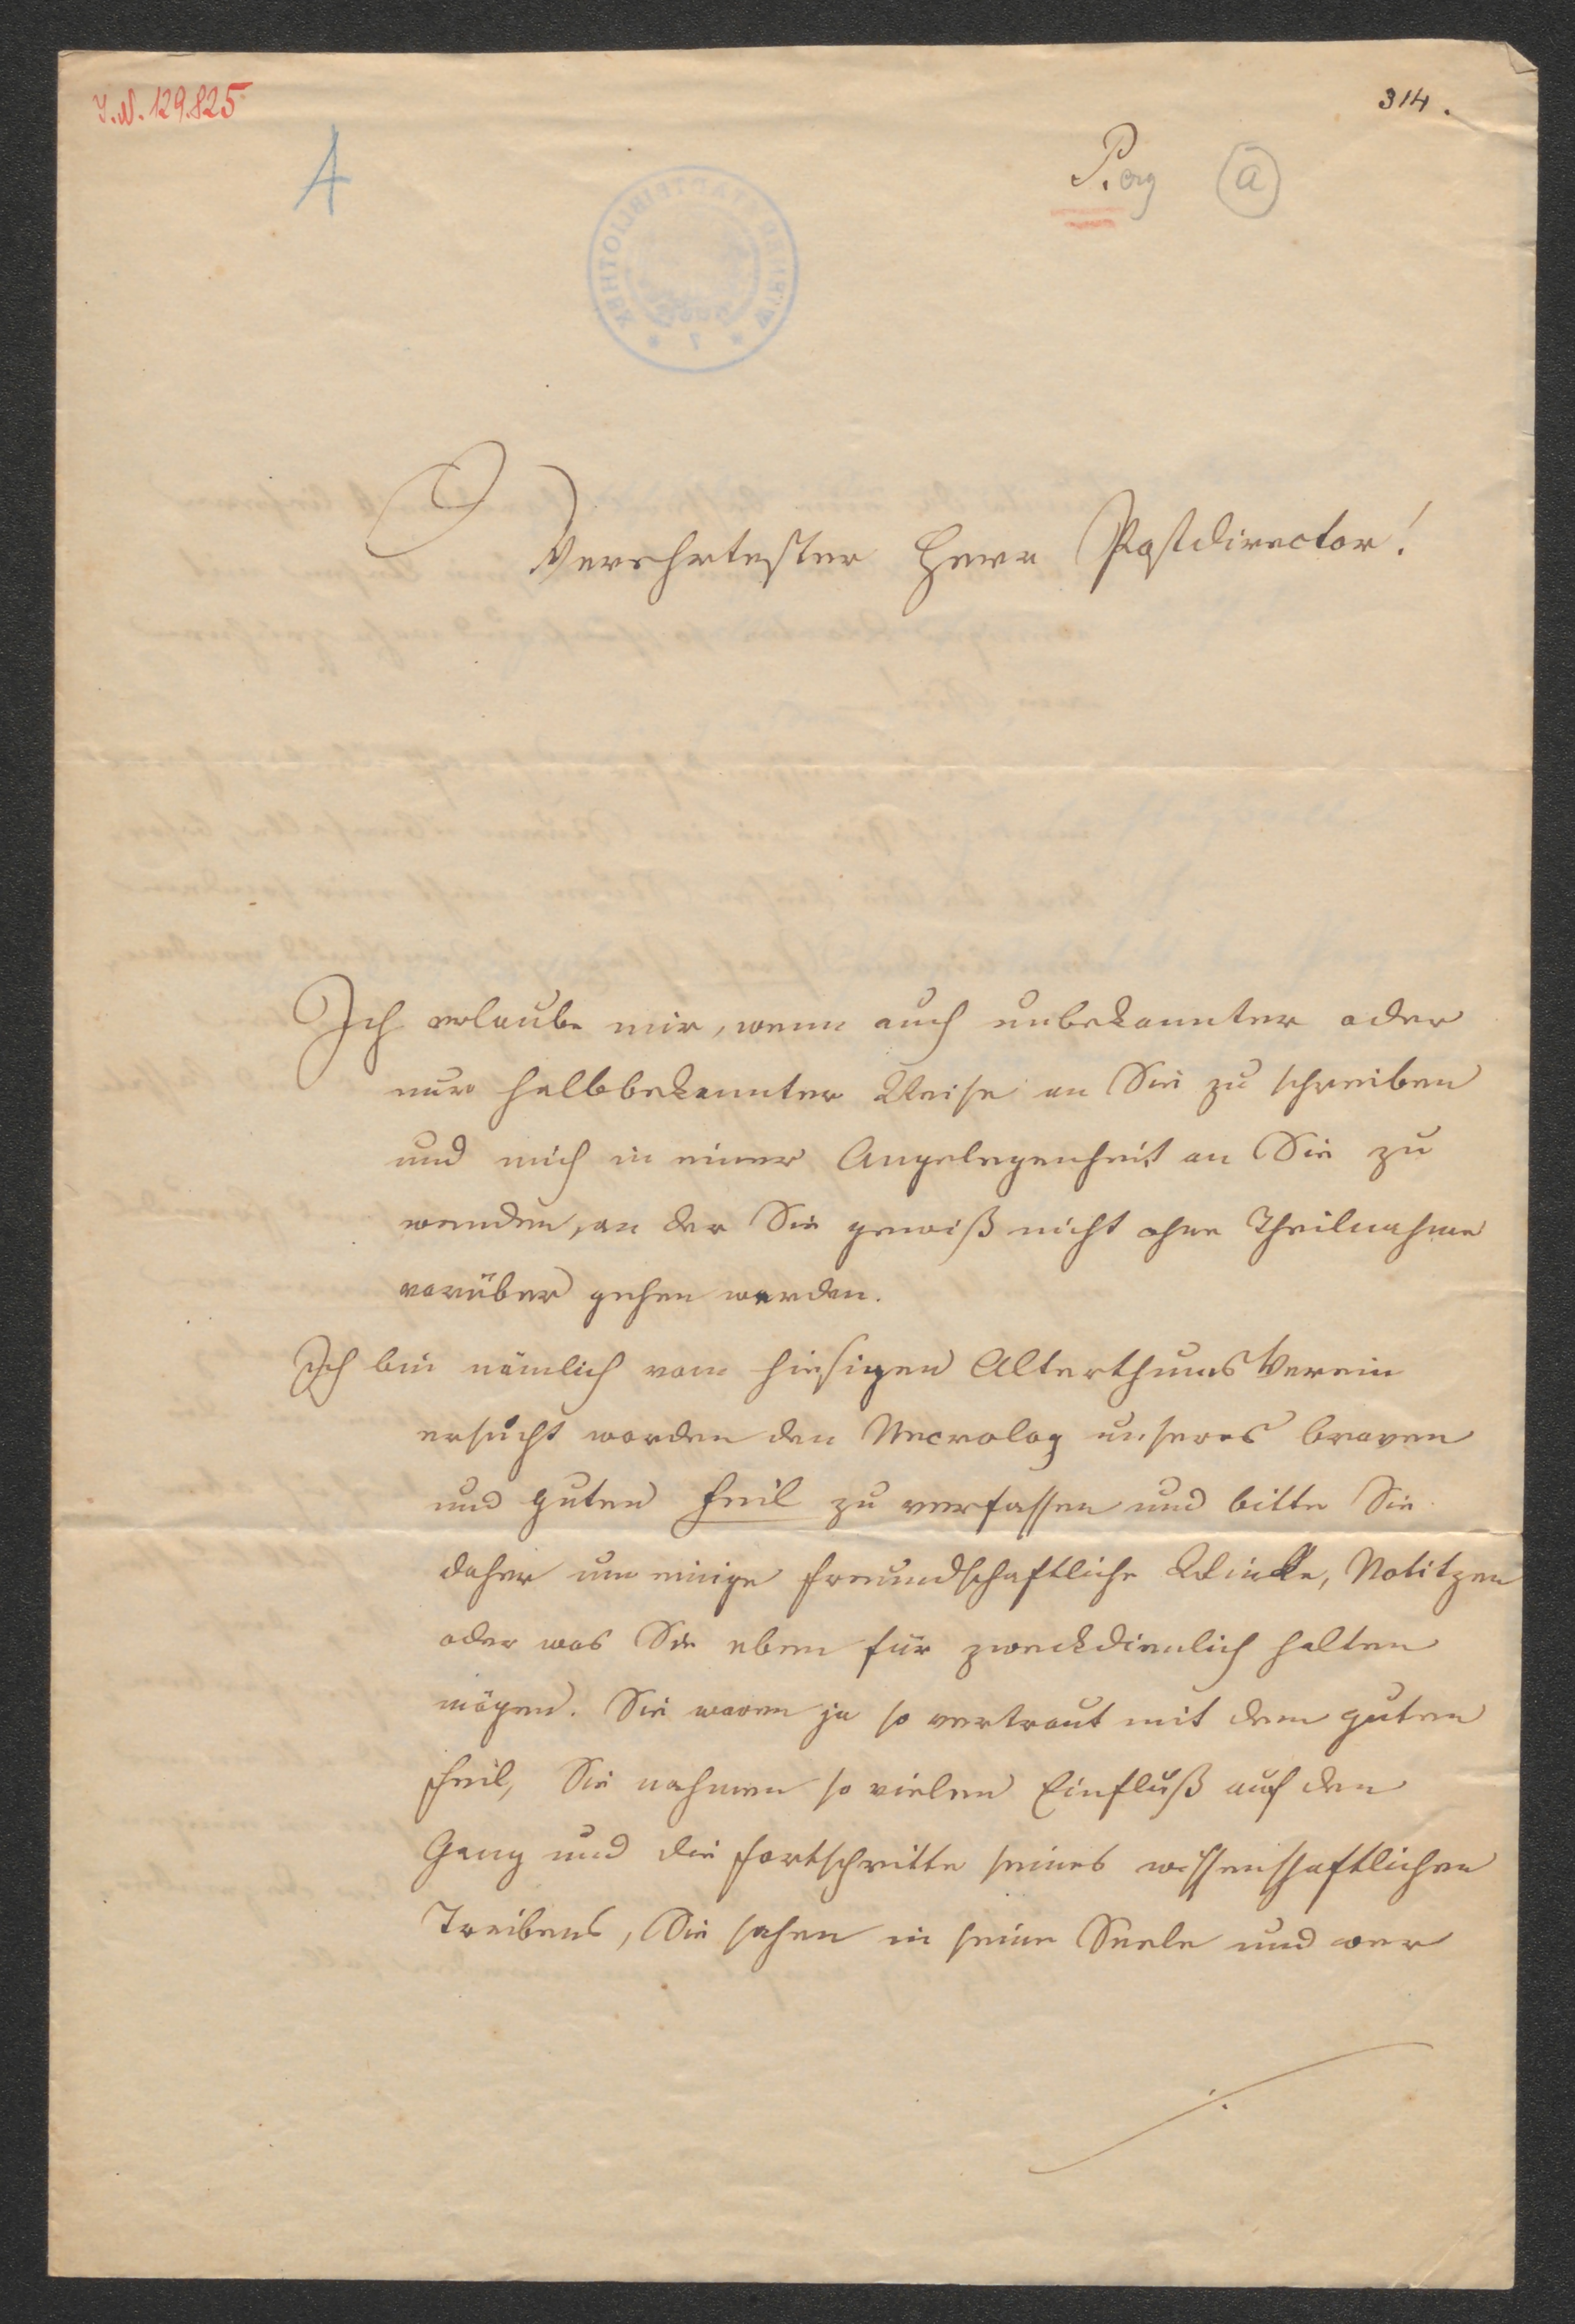 I.N. 129.825
314.
A
P.org
a
WIENER STADTBIBLIOTHEK
Verehrtester Herr Postdirector!
Ich erlaube mir, wenn auch unbekannter oder
nur halbbekannter Weise an Sie zu schreiben
und mich in einer Angelegenheit an Sie zu
wenden, an der Sie gewiß nicht ohne Theilnahme
vorüber gehen werden.
Ich bin nämlich vom hiesigen Alterthums Verein
ersucht worden den Necrolog unseres braven
und guten Feil zu verfassen und bitte Sie
daher um einige freundschaftliche Winke, Notitzen
oder was Sie eben für zweckdienlich halten
mögen. Sie waren ja so vertraut mit dem guten
Feil, Sie nahmen so vielen Einfluß auf den
Gang und die Fortschritte seines wissenschaftlichen
Treibens, Sie sahen in seine Seele und wer
./.